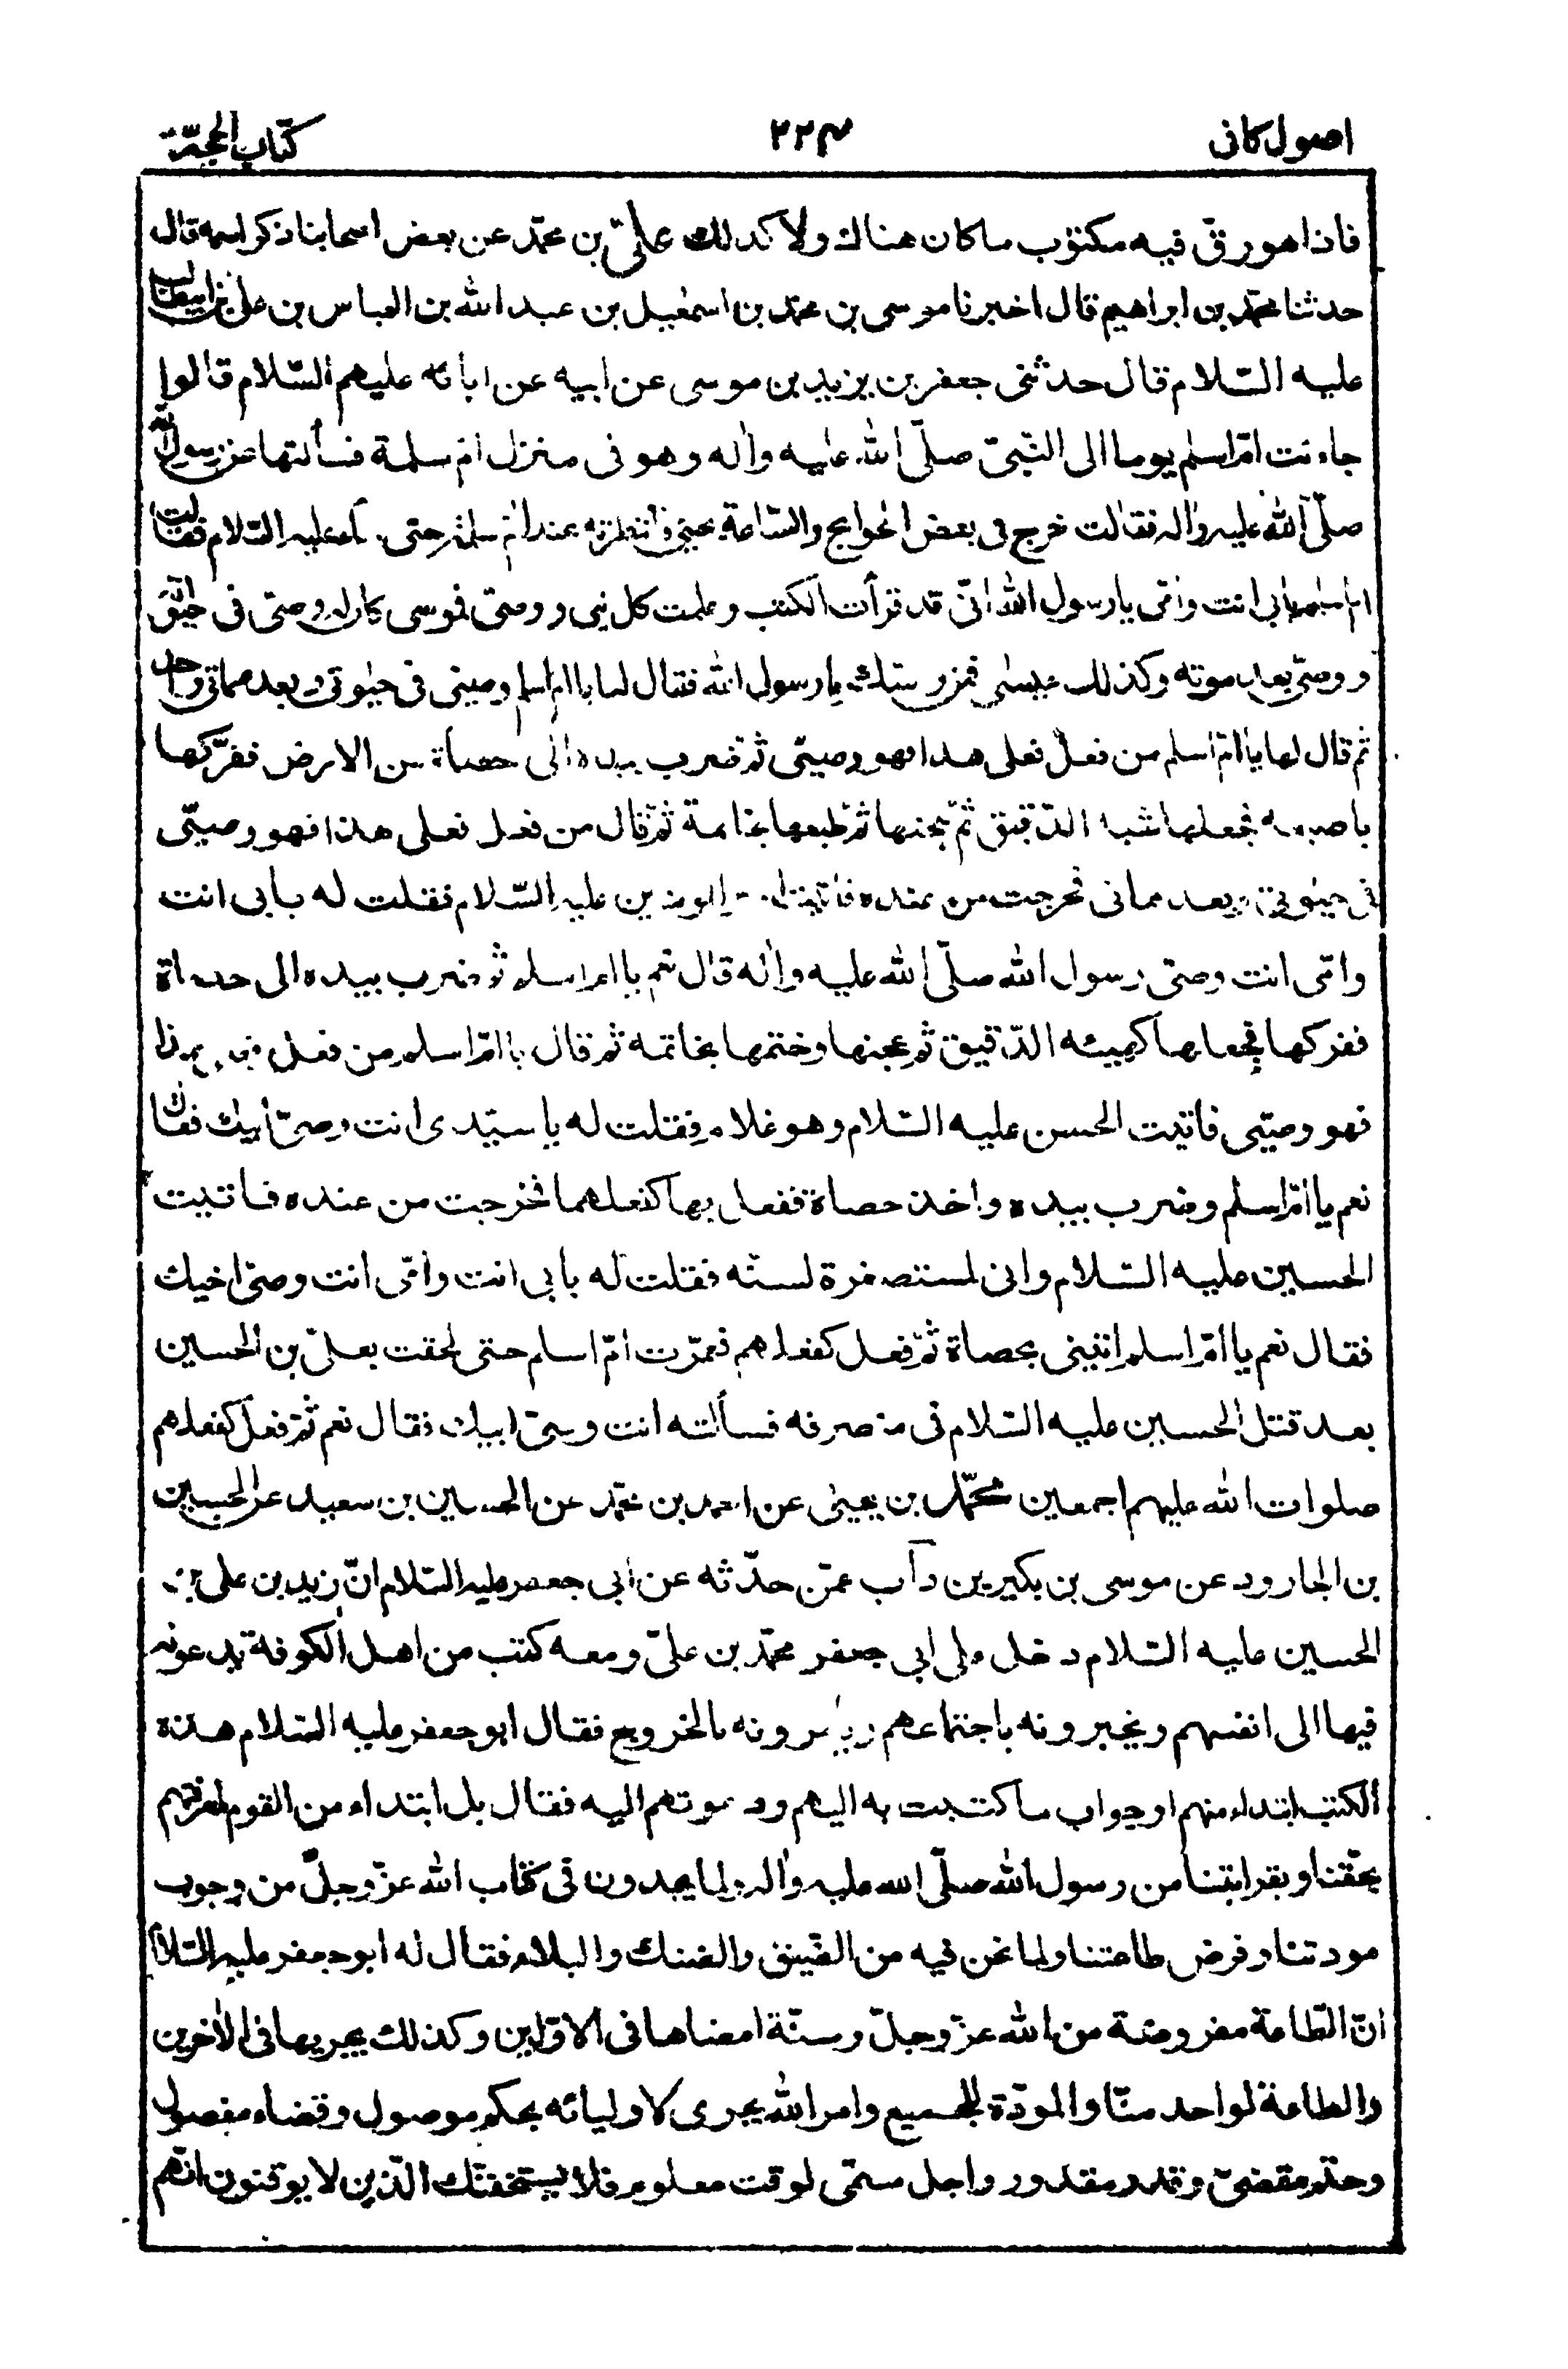 اصول كافى ٢٢٣ كتاب الحجّة
فاذا هو ورق فيه مكتوب ما كان هناك ولا كذلك علىّ بن محمّد عن بعض اصحابنا ذكر اسمه قال
حدثنا محمّد بن ابراهيم قال اخبرنا موسى بن محمّد بن اسمٰعيل بن عبد الله بن العباس بن على بن ابيطالب
عليه السّلام قال حدثنى جعفر بن يزيد بن موسى عن ابيه عن اٰبائه عليهم السّلام قالوا
جاءت امّ اسلم يوما الى النّبىّ صلّى الله عليه واٰله وهو فى منزل امّ سلمة فسألتها عن رسول الله
صلّى الله عليه واٰله فقالت خرج فى بعض الحوايج والسّاعة يجيئ فانتظرته عند امّ سلمة حتى جاء عليه السّلام فقالت
امّ اسلم بابى انت وامّى يا رسول الله انّى قد قرأت الكتب وعلمت كل نبى و وصىّ فموسى كان له وصىّ فى حيٰوته
و وصىّ بعد موته وكذلك عيسىٰ فمن وصيّك يا رسول الله فقال لها يا امّ اسلم وصيى فى حيٰوتى وبعد مماتى واحد
ثم قال لها يا امّ اسلم من فعل فعلى هذا فهو وصيّى ثم ضرب بيده الى حصاة من الارض ففرّكها
باصبعه فجعلها شبه الدّقيق ثمّ عجنها ثم طبعها بخاتمه ثمّ قال من فعل فعلى هذا فهو وصيّى
فى حيٰوتى وبعد مماتى فخرجت من عنده فاتيت المؤمنين عليه السّلام فقلت له بابى انت
وامّى انت وصىّ رسول الله صلّى الله عليه واٰله قال نعم يا امّ اسلم ثم ضرب بيده الى حصاة
ففركها فجعلها كهيئه الدّقيق ثم عجنها وختمها بخاتمه ثم قال يا امّ اسلم من فعل فعلى هذا
فهو وصيّى فاتيت الحسن عليه السّلام وهو غلام فقلت له يا سيّدى انت وصىّ ابيك فقال
نعم يا امّ اسلم وضرب بيده واخذ حصاة ففعل بها كفعلهما فخرجت من عنده فاتيت
الحسين عليه السّلام وانى لمستصغرة لسنّه فقلت له بابى انت وامّى انت وصىّ اخيك
فقال نعم يا امّ اسلم ائتينى بحصاة ثمّ فعل كفعلهم فعمّرت امّ اسلم حتى لحقت بعلىّ بن الحسين
بعد قتل الحسين عليه السّلام فى منصرفه فسألته انت وصىّ ابيك فقال نعم ثمّ فعل كفعلهم
صلوات الله عليهم اجمعين محمّد بن يحيىٰ عن احمد بن محمّد عن الحسين بن سعيد عن الحسين
بن الجارود عن موسى بن بكير بن دآب عمّن حدّثه عن ابى جعفر عليه السّلام انّ زيد بن على بن
الحسين عليه السّلام دخل على ابى جعفر محمّد بن علىّ ومعه كتب من اهل الكوفة يدعونه
فيها الى انفسهم ويخبرونه باجتماعهم ويأمرونه بالخروج فقال ابو جعفر عليه السّلام هذه
الكتب ابتداء منهم او جواب ما كتبت به اليهم ودعوتهم اليه فقال بل ابتداء من القوم لمعرفتهم
بحقّنا وبقرابتنا من رسول الله صلّى الله عليه واٰله ولما يجدون فى كتاب الله عزّ وجلّ من وجوب
مودتنا وفرض طاعتنا ولما نحن فيه من الضّيق والضنك والبلاء فقال له ابو جعفر عليه السّلام
انّ الطّاعة مفروضة من الله عزّ وجلّ وسنّة امضاها فى الاوّلين وكذلك يجريها فى الاٰخرين
والطاعة لواحد منّا والمودّة للجميع وامر الله يجرى لاوليائه بحكم موصول وقضاء مفصول
وحتم مقضىّ وقدر مقدور واجل مسمّى لوقت معلوم فلا يستخفنّك الّذين لا يوقنون انّهم